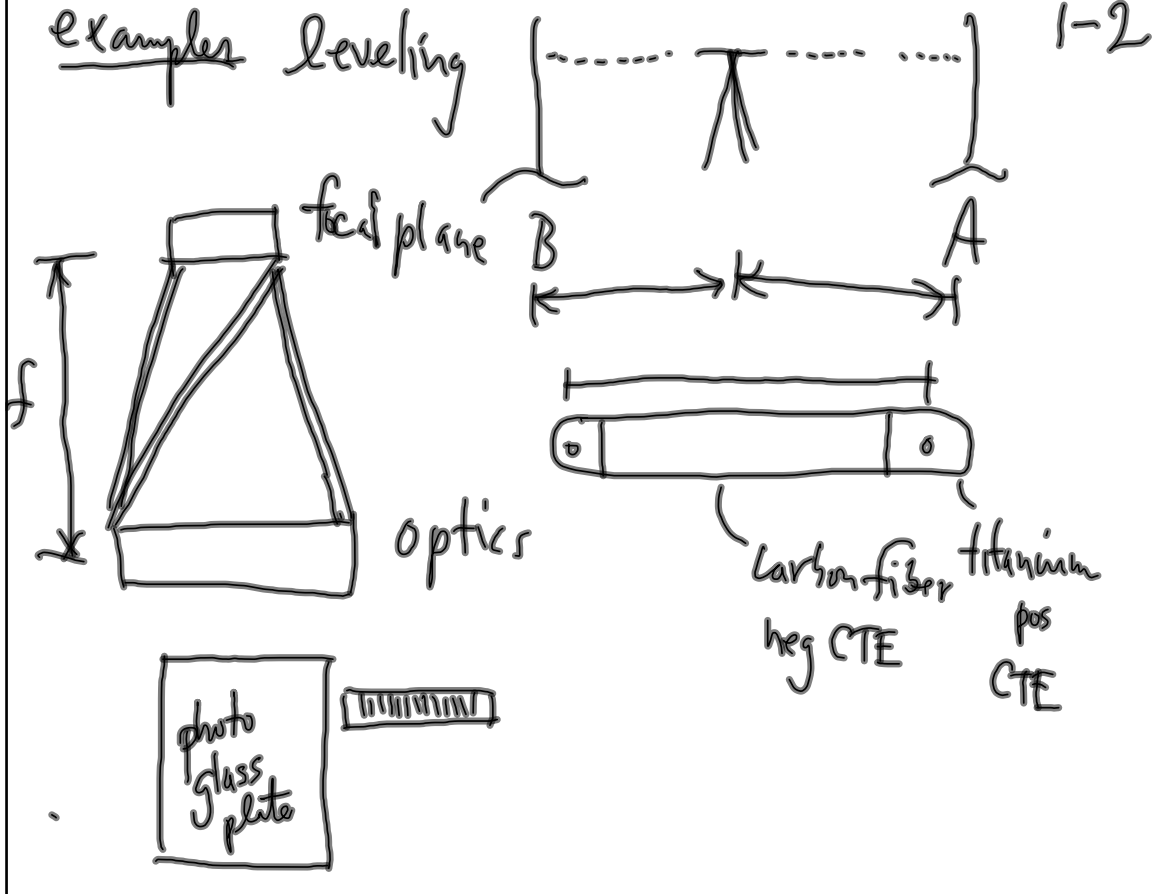 examples leveling
1-2
focal plane
B
A
f
optics
carbon fiber
neg CTE
titanium
pos
CTE
photo
glass
plate